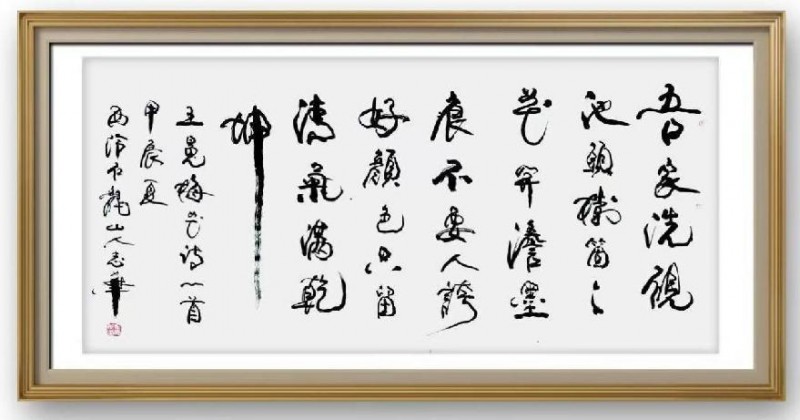 吾家洗硯
池頭樹箇々
花開澹墨
痕不要人誇
好顏色只留
清氣滿乾
坤
王冕梅花詩一首
甲辰夏
西泠龍山人志華